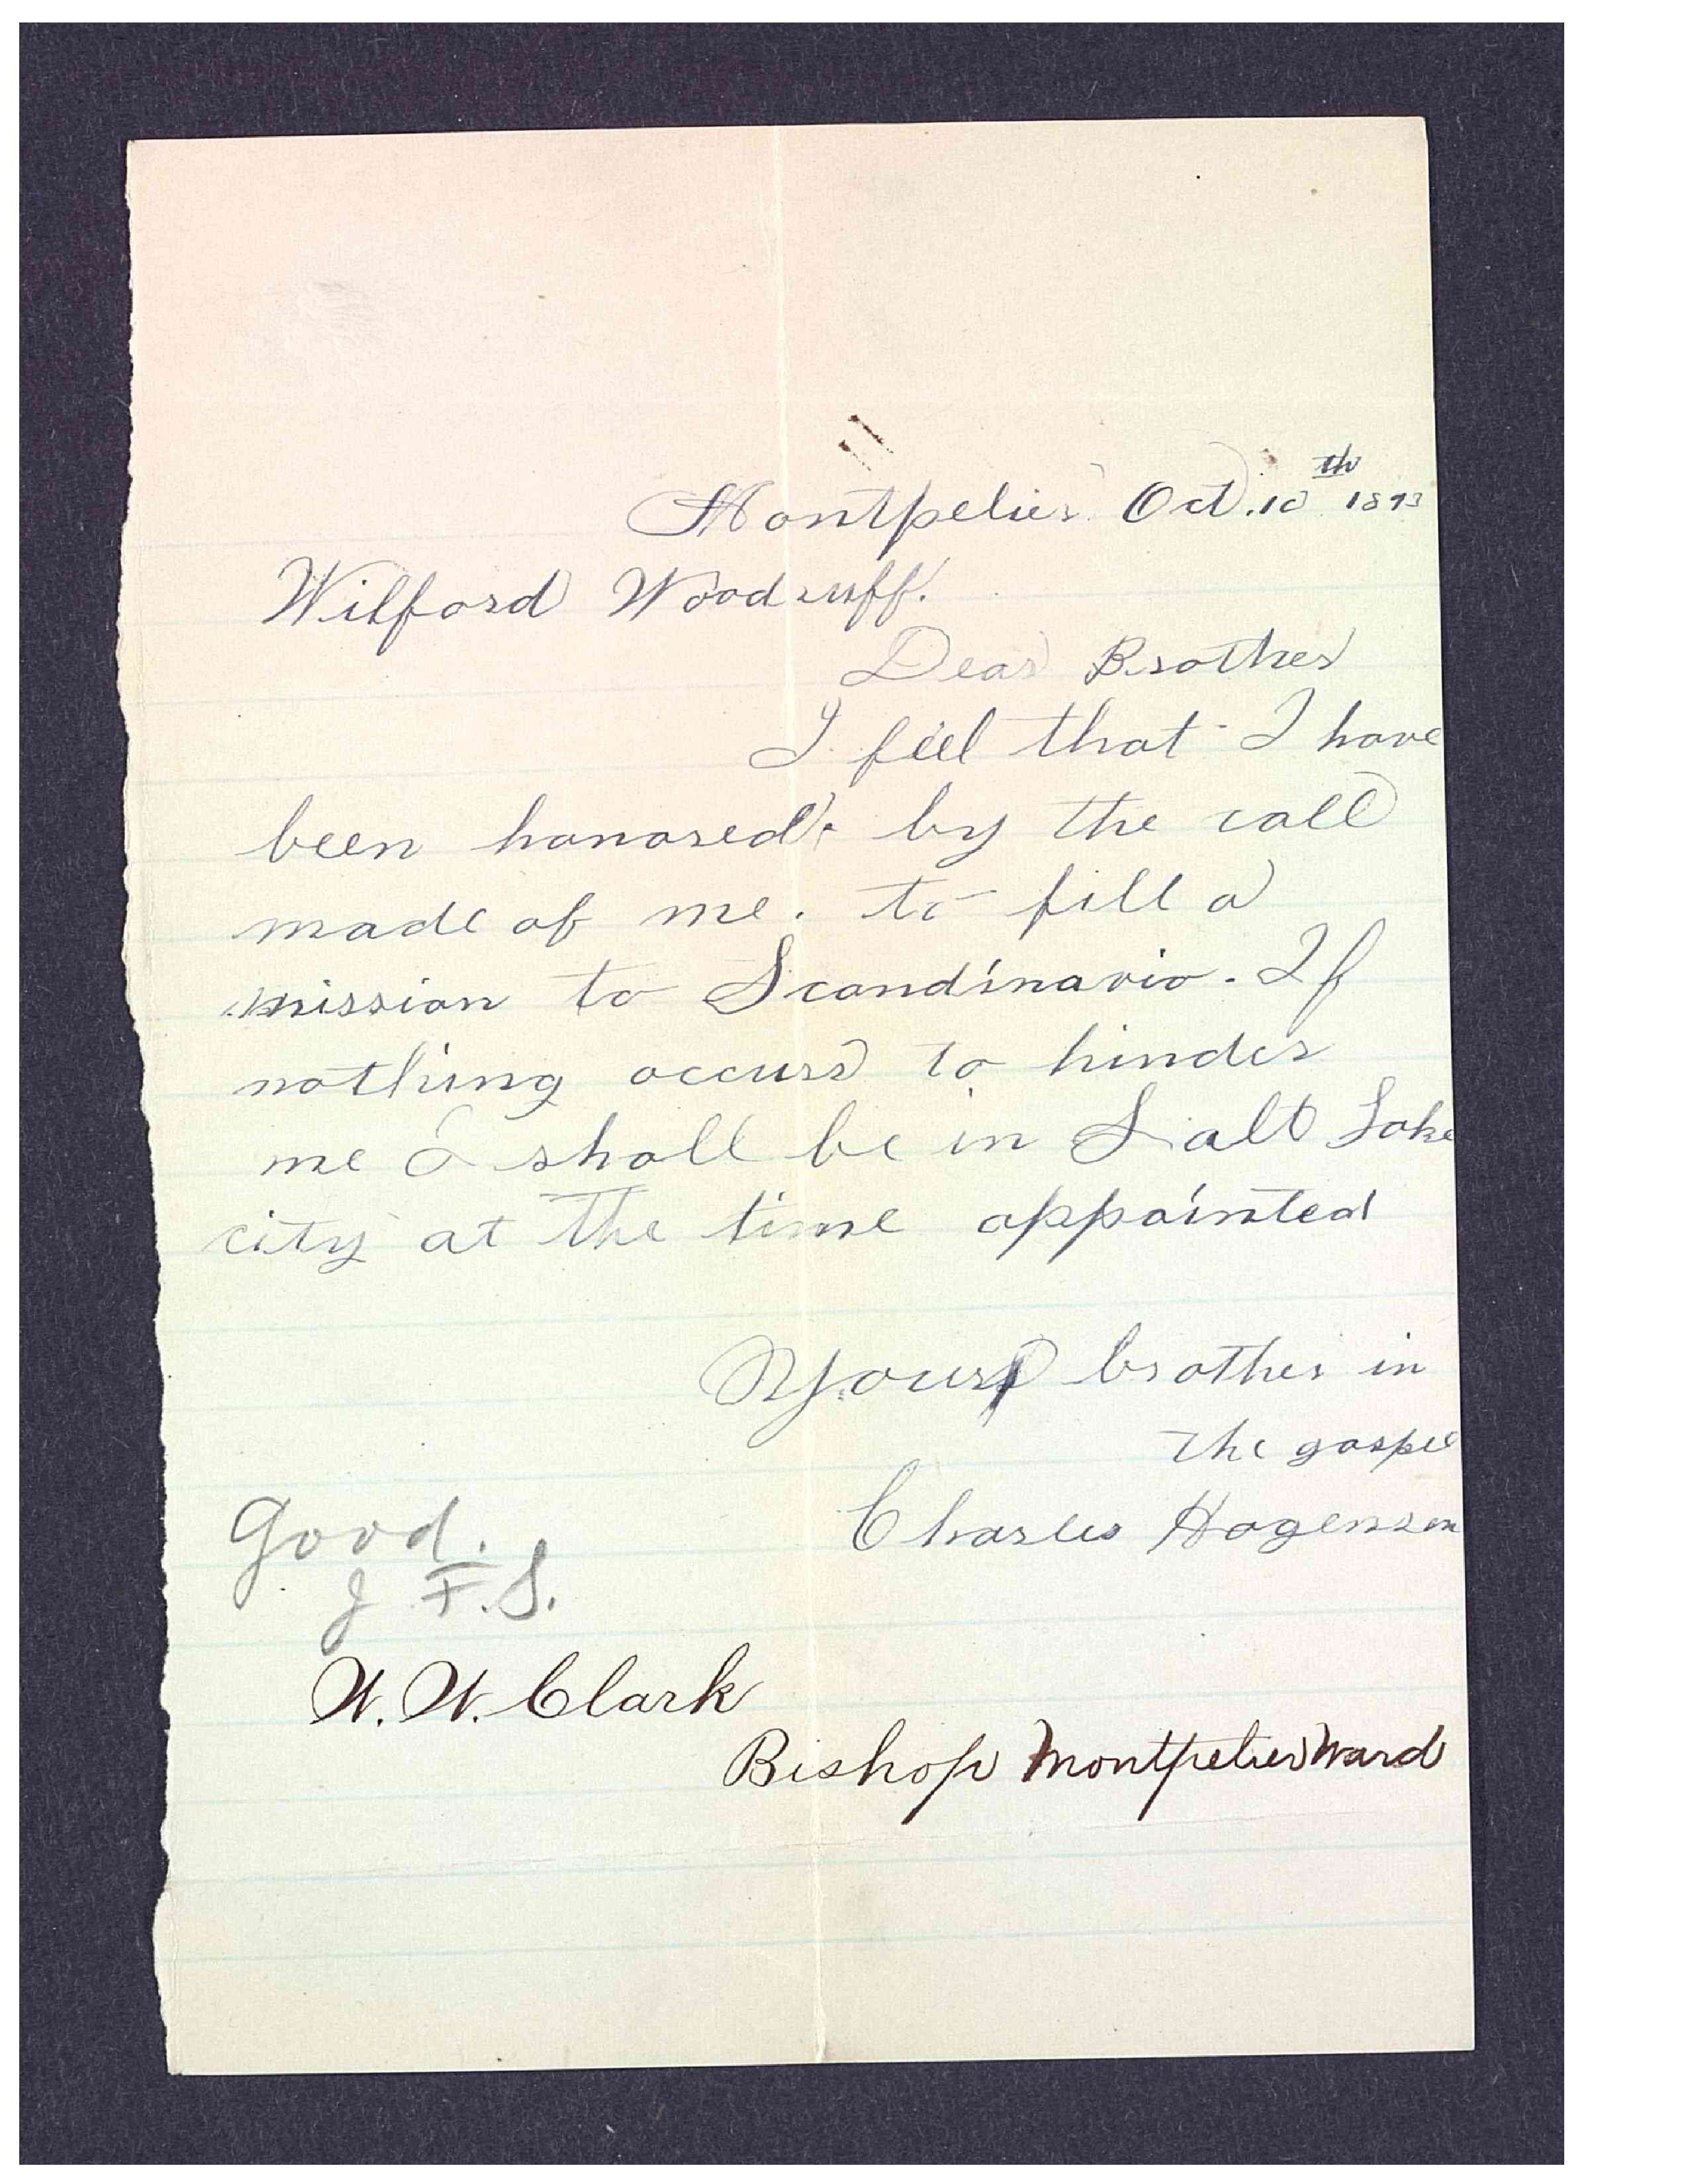 Montpelier Oct. 10th 1893
Wilford Woodruff.
Dear Brother
I feel that I have
been honored by the call
made of me. to fill a
mission to Scandinavia. If
nothing occurs to hinder
me I shall be in Salt Lake
city at the time appointed
Your brother in
the gospel
Charles Hogensen
Good.
J. F. S.
W. W. Clark
Bishop Montpelier Ward